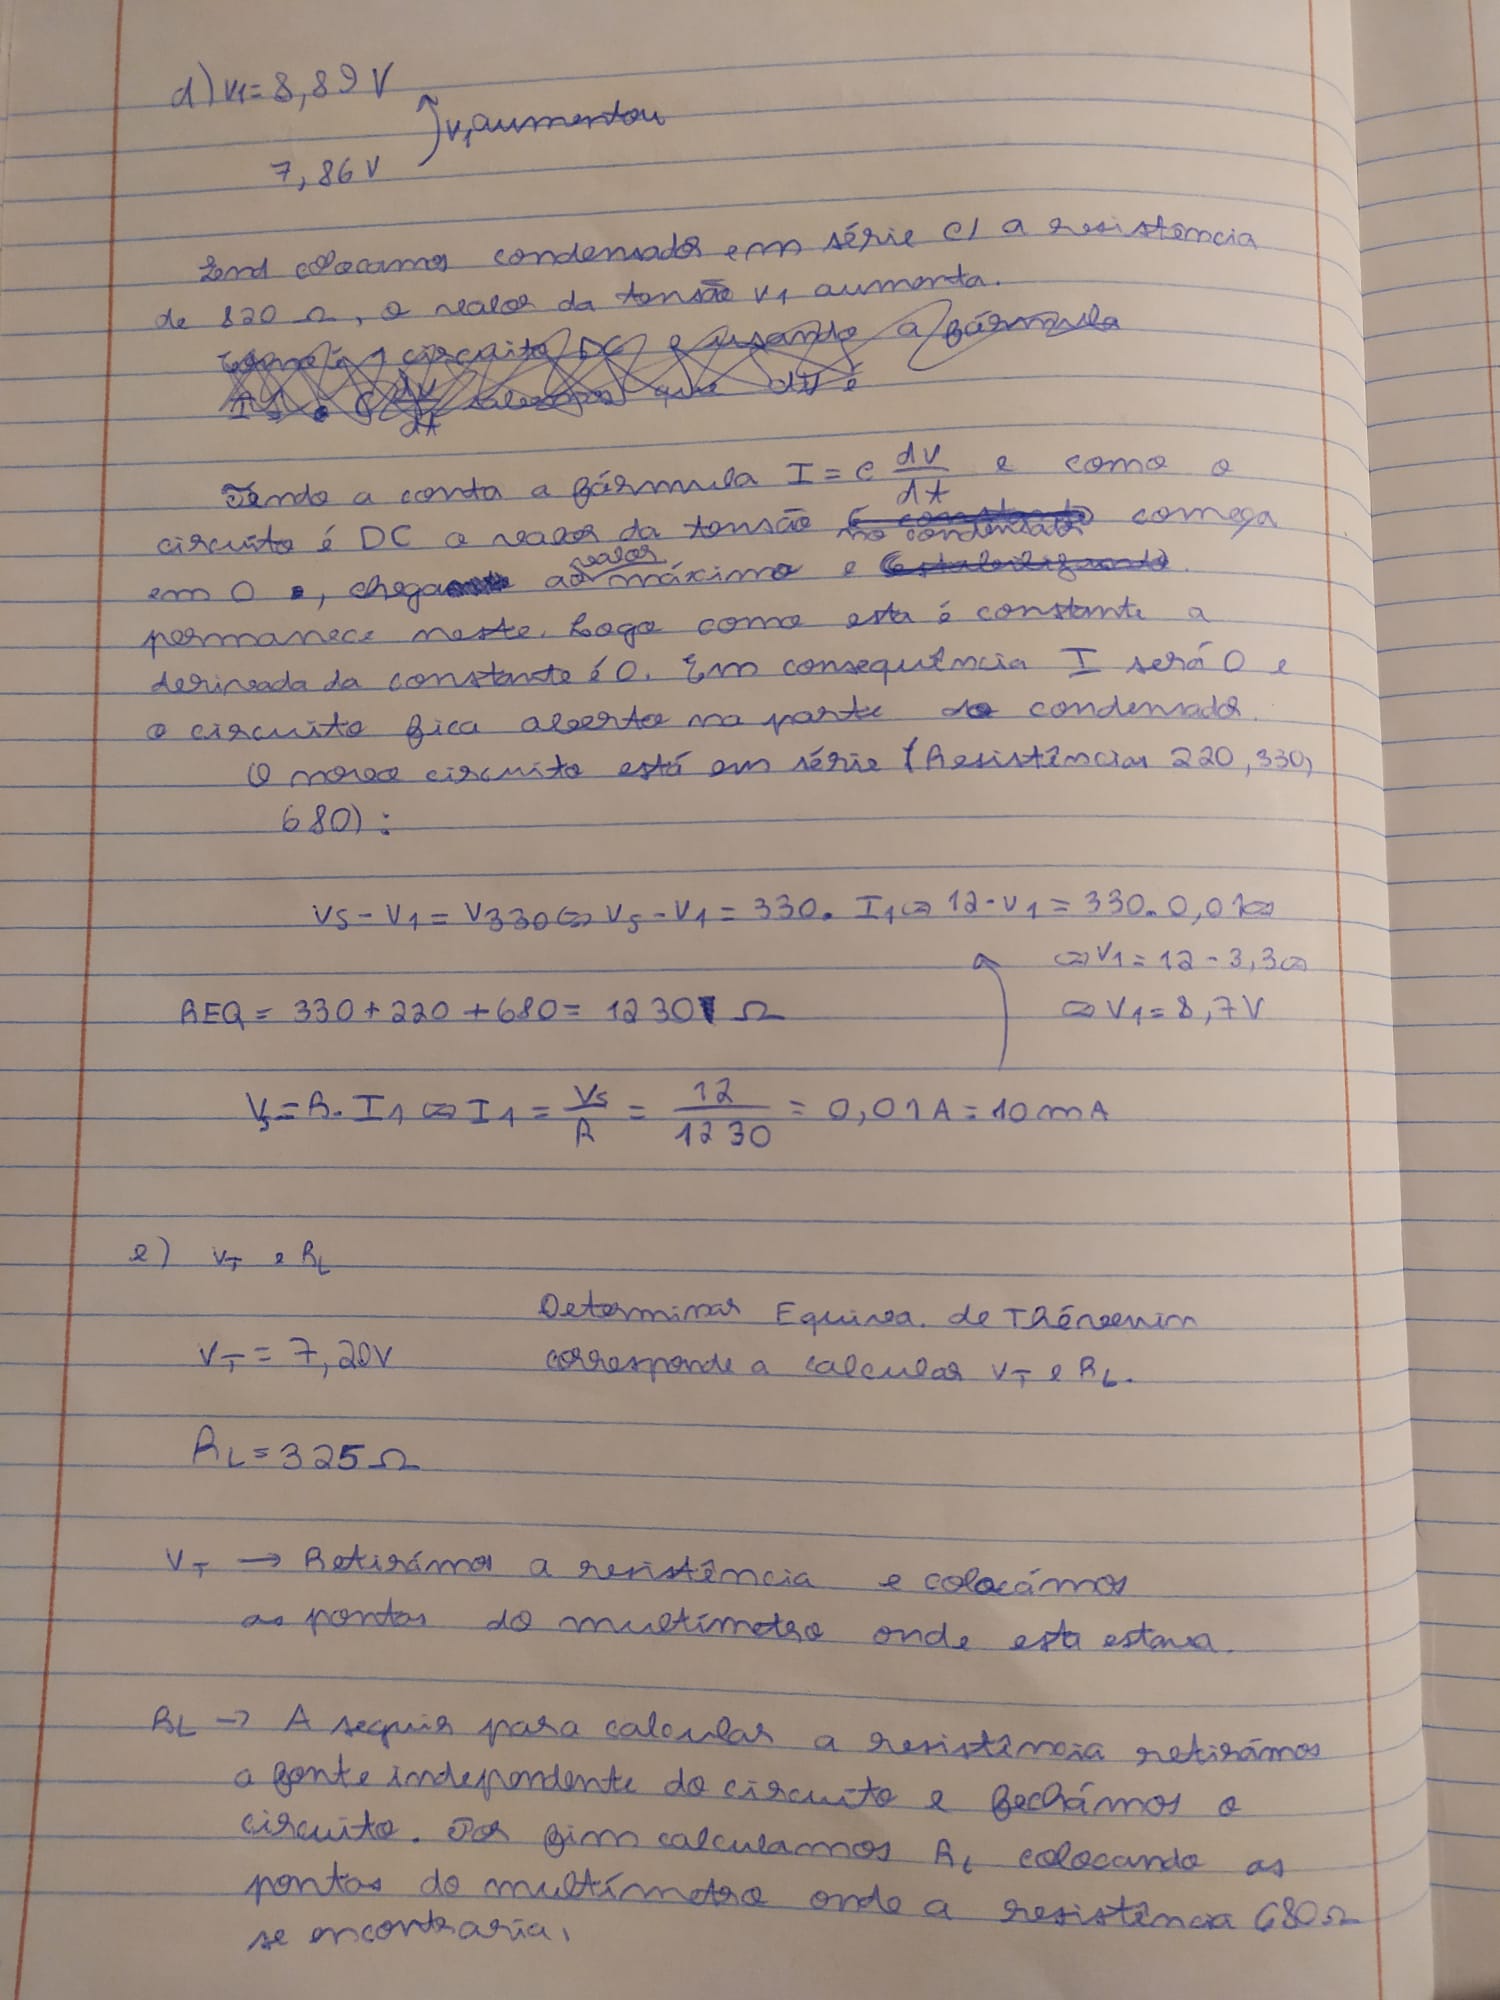 d) V1 = 8,89 V
V1 aumentou
7,86 V
colocamos condensador em série c/ a resistência
de 820 Ω, o valor da tensão V1 aumenta.
1 circuito DC e usando a fórmula
dV
que é
dt
Tendo a conta a fórmula I = C dV/dt e como o
circuito é DC o valor da tensão no condensador começa
em 0, chega ao valor máximo e
permanece neste. Logo como esta é constante a
derivada da constante é 0. Em consequência I será 0 e
o circuito fica aberto na parte do condensador.
O novo circuito está em série (Resistências 220, 330,
680):
VS - V1 = V330 ⇔ VS - V1 = 330 . I1 ⇔ 12 - V1 = 330 . 0,01 ⇔
⇔ V1 = 12 - 3,3 ⇔
REQ = 330 + 220 + 680 = 1230 Ω
⇔ V1 = 8,7 V
VS = R . I1 ⇔ I1 = VS/R = 12/1230 = 0,01 A = 10 mA
e) VT e RL
Determinar Equiva. de Thévenin
VT = 7,20V
corresponde a calcular VT e RL.
RL = 325 Ω
VT → Retirámos a resistência e colocámos
as pontas do multímetro onde esta estava.
RL → A seguir para calcular a resistência retirámos
a fonte independente do circuito e fechámos o
circuito. Por fim calculamos RL colocando as
pontas do multímetro onde a resistência 680 Ω
se encontraria.